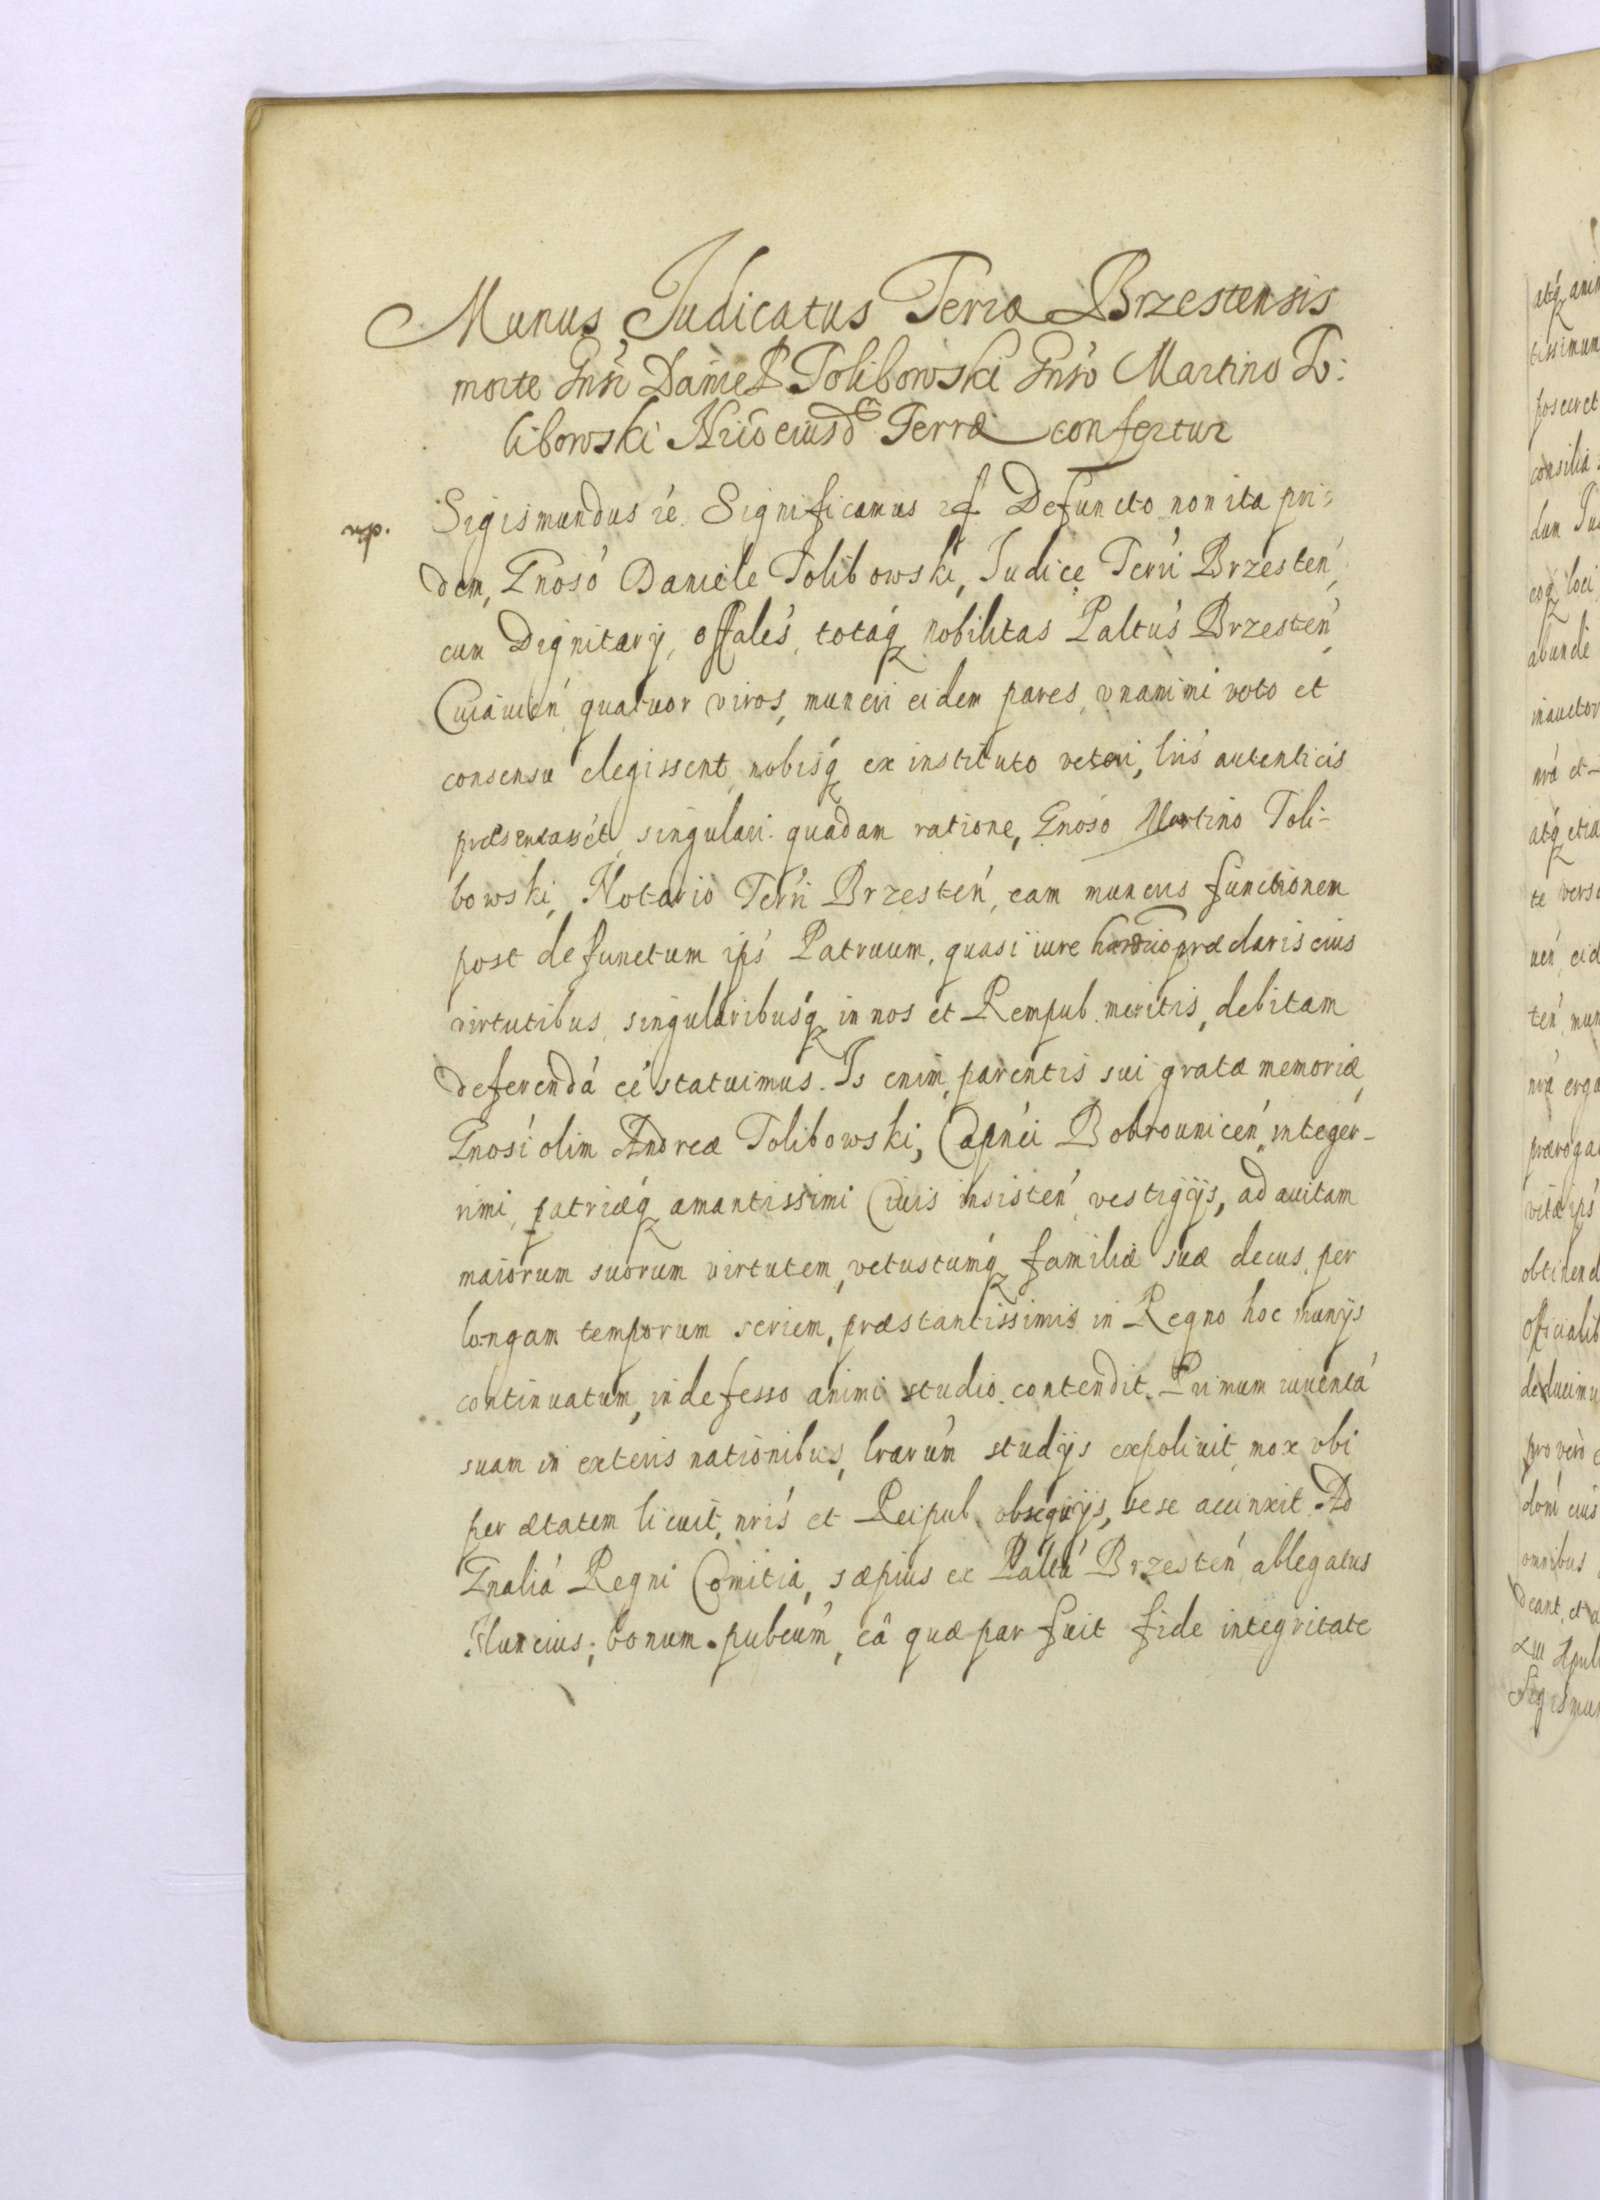 Munus Judicatus Terræ Brzestensis
morte Gnsi Daniel Tolibowski Gnso Martino To:
libowski Nrio eiusd Terræ confertur
Sigismundus ie. Significamus if Defuncto non ita pri:
dem, Gnoso Daniele Tolibowski, Judice Terri Brzesten,
cum Dignitarij, offales, totaq nobilitas Paltus Brzesten
Cuiauien quatuor viros, muneri eidem pares, vnanimi voto et
consensu elegissent, nobisq ex instituto veteri, lris autenticis
præsentasset, singulari quadam ratione, Gnoso Martino Toli-
bowski, Notario Terri Brzesten, eam muneris functionem
post defunctum ips Patruum, quasi iure hærdrio præclaris eius
virtutibus, singularibusq in nos et Rempub. meritis, debitam
deferenda ee statuimus. Is enim, parentis sui gratæ memoriæ
Gnosi olim Andreæ Tolibowski, Capnei Bobrounicen, integer-
rimi, patriæq amantissimi Ciuis insisten vestigijs, ad auitam
maiorum suorum virtutem, vetustumq familiæ suæ decus, per
longam temporum seriem, præstantissimis in Regno hoc munijs
continuatum, indefesso animi studio contendit. Primum iuuenta
suam in exteris nationibus, lrarum studijs expoliuit, mox vbi
per ætatem licuit, nris et Reipub. obsequijs, sese accinxit. Ad
Gnalia Regni Comitia, sæpius ex Paltu Brzesten ablegatus
Nuncius, bonum pubcum, eâ quæ par fuit fide integritate